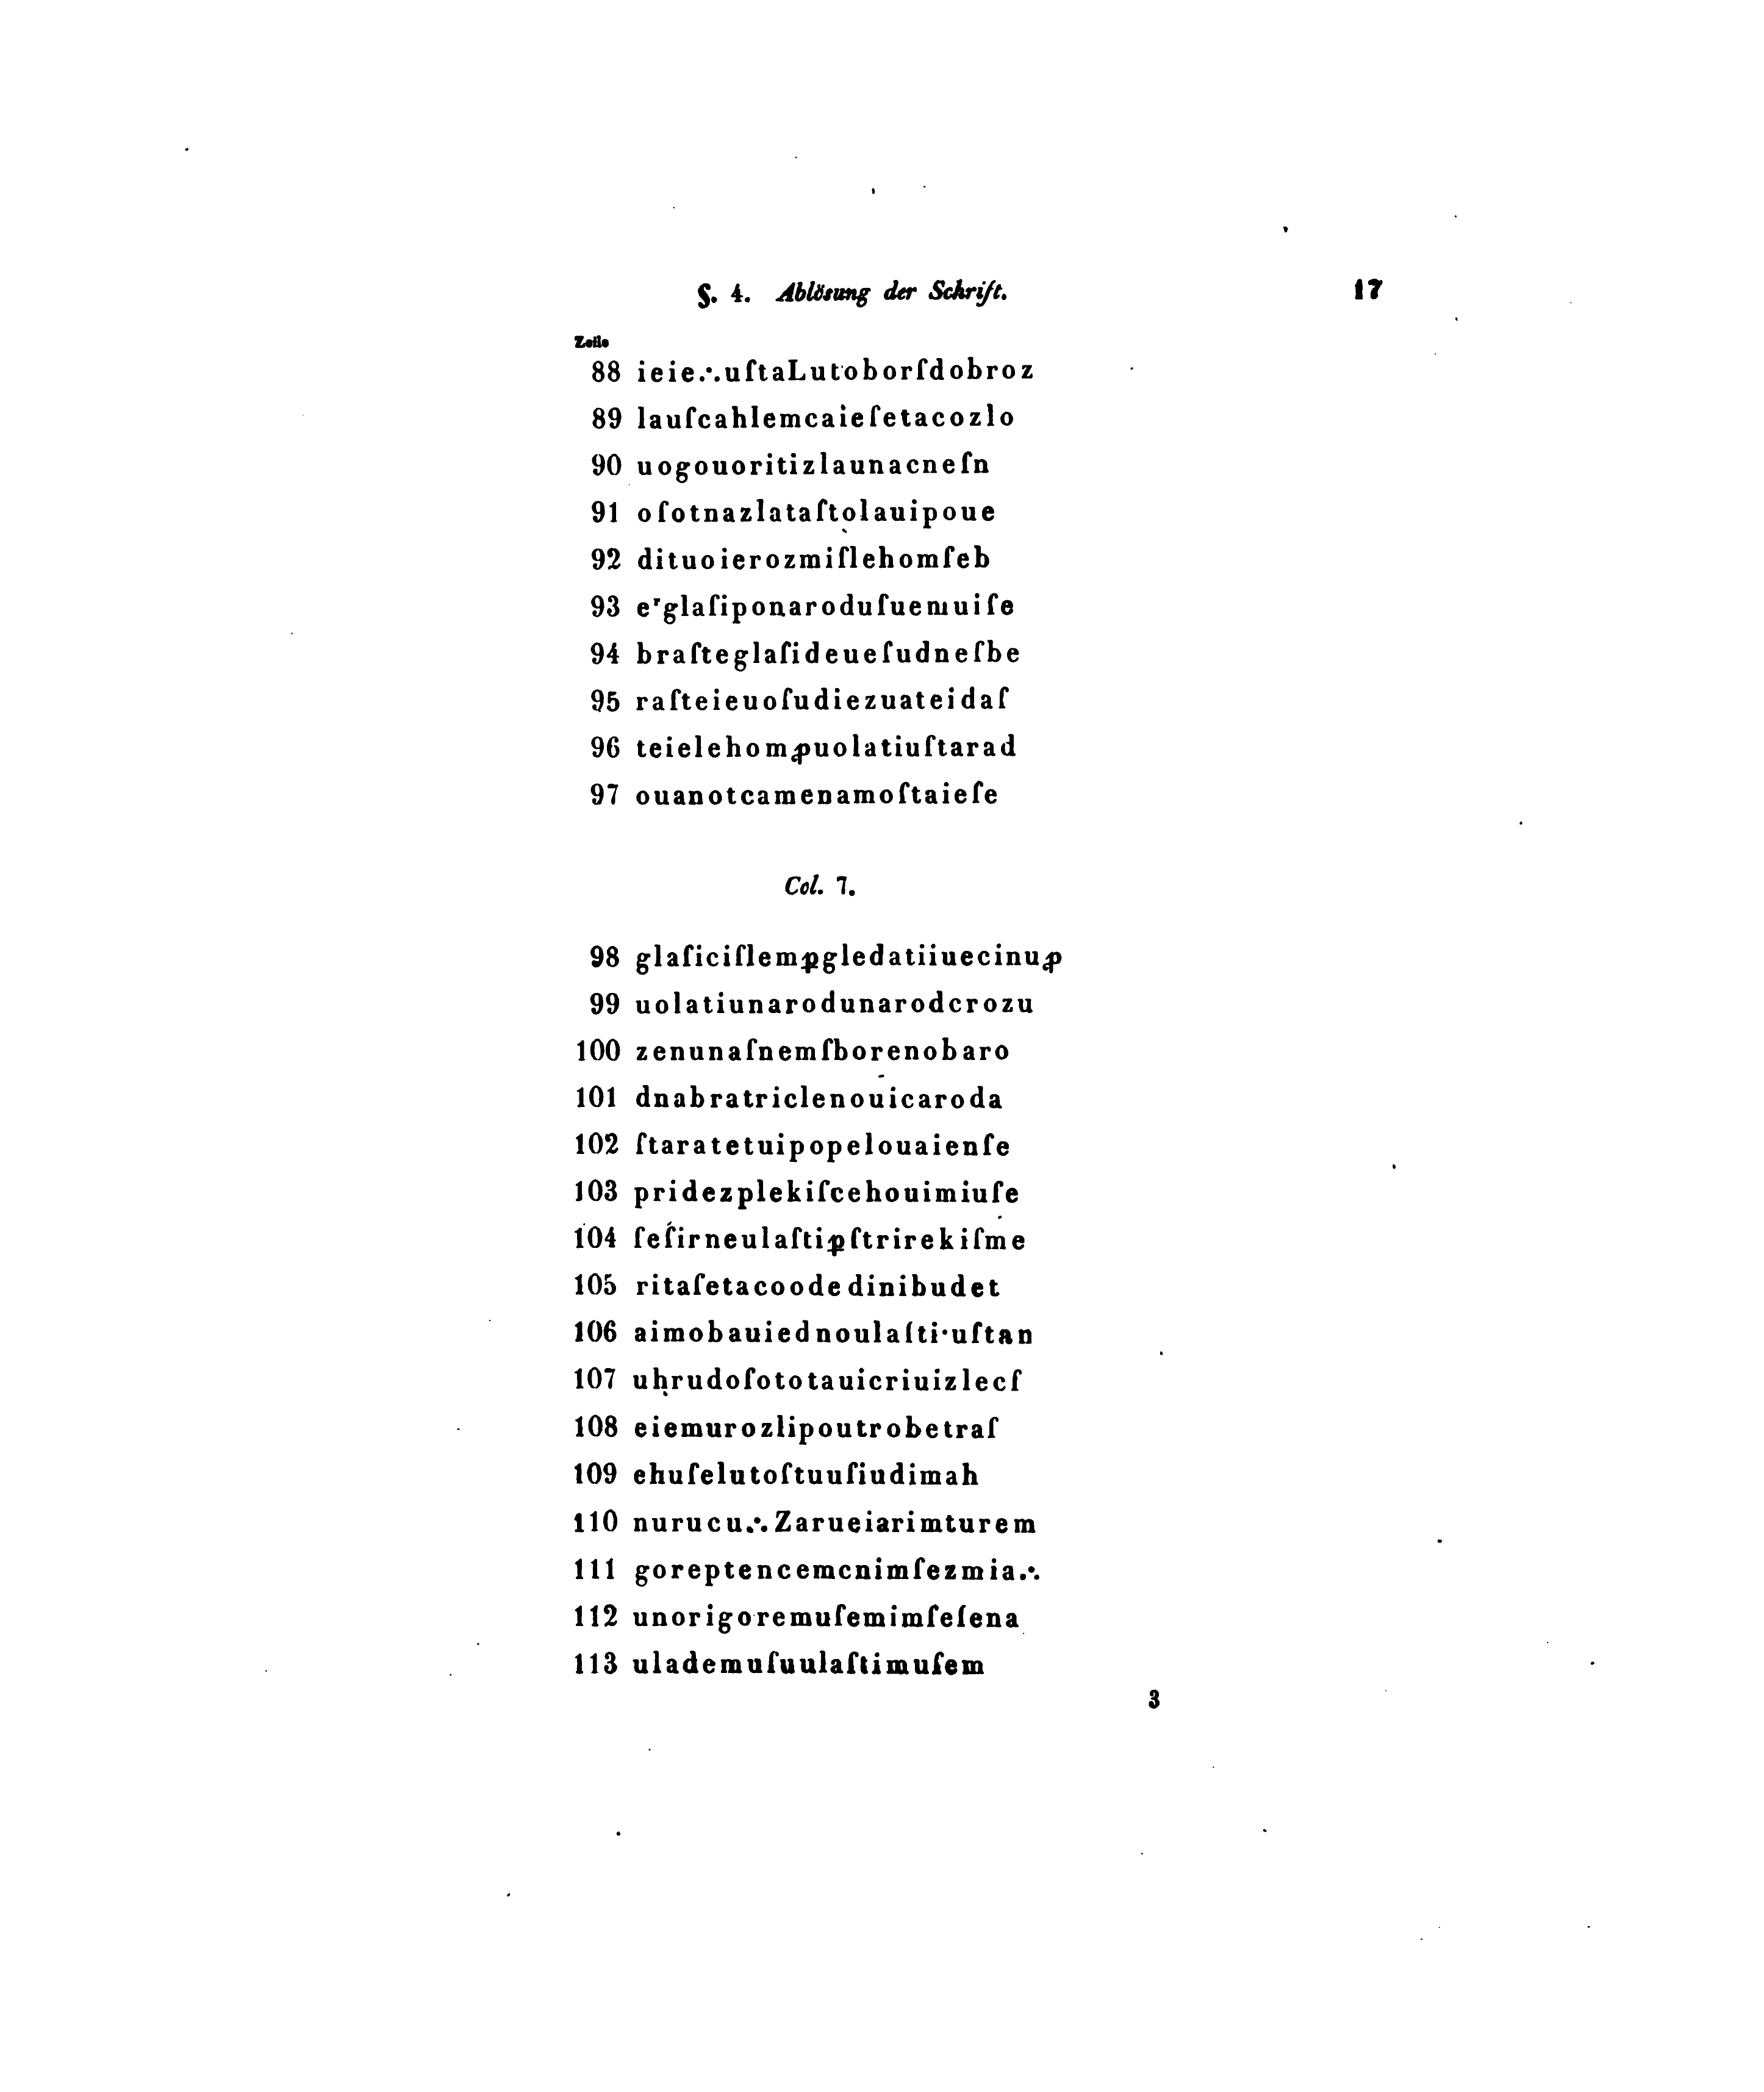 §. 4. Ablösung der Schrift. 17
Zeile
88 ieie.·.uſtaLutoborſdobroz
89 lauſcahlemcaieſetacozlo
90 uogouoritizlaunacneſn
91 oſotnazlataſtolauipoue
92 dituoierozmiſlehomſeb
93 eʳglaſiponaroduſuemuiſe
94 braſteglaſideueſudneſbe
95 raſteieuoſudiezuateidaſ
96 teielehomꝓuolatiuſtarad
97 ouanotcamenamoſtaieſe
Col. 7.
98 glaſiciſlemꝑgledatiiuecinuꝓ
99 uolatiunarodunarodcrozu
100 zenunaſnemſborenobaro
101 dnabratriclenouicaroda
102 ſtaratetuipopelouaienſe
103 pridezplekiſcehouimiuſe
104 ſeſ́irneulaſtiꝑſtrirekiſme
105 ritaſetacoodedinibudet
106 aimobauiednoulaſti·uſtan
107 uḥrudoſototauicriuizlecſ
108 eiemurozlipoutrobetraſ
109 ehuſelutoſtuuſiudimah
110 nurucu.·.Zarueiarimturem
111 goreptencemcnimſezmia.·.
112 unorigoremuſemimſeſena
113 ulademuſuulaſtimuſem
3